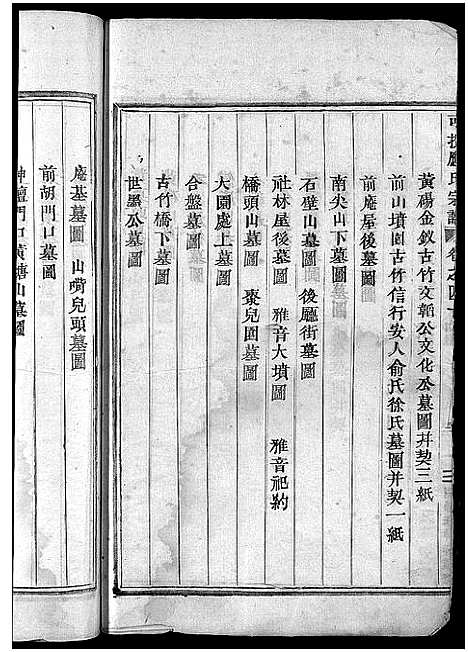 氏宗譜 卷之四十
黃楊金釵古竹文韜公文化公墓圖并契三紙
前山墳圖古竹信行安人俞氏徐氏墓圖并契一紙
前庵屋後墓圖
南尖山下墓圖
石壁山墓圖 後廳街墓圖
社林屋後墓圖 雅音大墳圖 雅音祀約
橋頭山墓圖 棗兒園墓圖
大園處上墓圖
合盤墓圖
古竹橋下墓圖
世墨公墓圖
庵基墓圖 山塘兒頭墓圖
前胡門口墓圖
神壇門口黃塘山墓圖